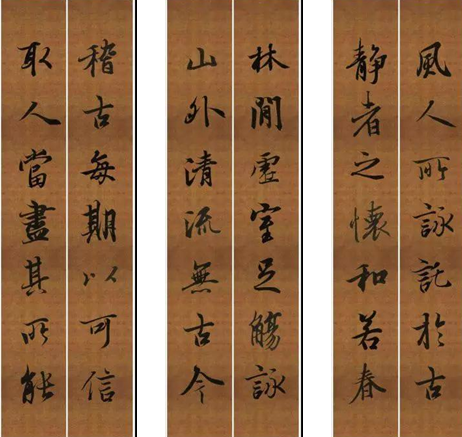 風人所詠託於古
靜者之懷和若春
林間虛室足觴詠
山外清流無古今
稽古每期以可信
取人當盡其所能